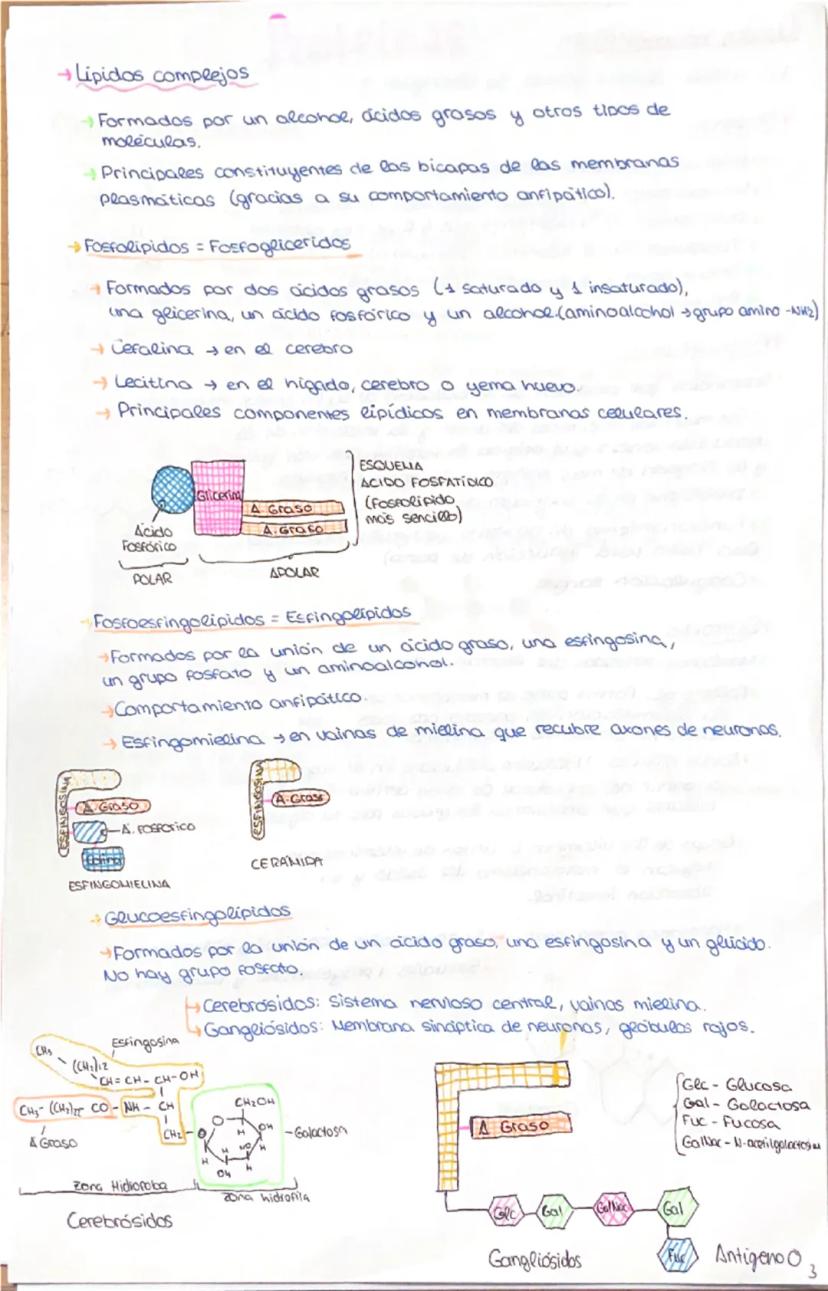 → Lípidos complejos
→ Formados por un alcohol, ácidos grasos y otros tipos de
moléculas.
→ Principales constituyentes de las bicapas de las membranas
plasmáticas (gracias a su comportamiento anfipático).
→ Fosfolípidos = Fosfoglicéridos
→ Formados por dos ácidos grasos (1 saturado y 1 insaturado),
una glicerina, un ácido fosfórico y un alcohol (aminoalcohol → grupo amino -NH2)
→ Cefalina → en el cerebro
→ Lecitina → en el hígado, cerebro o yema huevo.
→ Principales componentes lipídicos en membranas celulares.
Glicerina
A. Graso
A. Graso
Ácido
Fosfórico
POLAR
APOLAR
ESQUEMA
ÁCIDO FOSFATÍDICO
(Fosfolípido
más sencillo)
Fosfoesfingolípidos = Esfingolípidos
→ Formados por la unión de un ácido graso, una esfingosina,
un grupo fosfato y un aminoalcohol.
→ Comportamiento anfipático.
→ Esfingomielina → en vainas de mielina que recubre axones de neuronas.
ESFINGOSINA
A. Graso
A. FOSFÓRICO
Colina
ESFINGOMIELINA
ESFINGOSINA
A. Graso
CERAMIDA
→ Glucoesfingolípidos
→ Formados por la unión de un ácido graso, una esfingosina y un glúcido.
No hay grupo fosfato.
→ Cerebrósidos: Sistema nervioso central, vainas mielina.
→ Gangliósidos: Membrana sináptica de neuronas, glóbulos rojos.
Esfingosina
CH3
(CH2)12
CH = CH - CH - OH
CH3 - (CH2)n CO - NH - CH
A Graso
CH2
O
CH2OH
O
H
OH
H
HO
H
H
OH
H
Galactosa
Zona Hidrofoba
Zona hidrofila
Cerebrósidos
A Graso
Glc
Gal
GalNac
Gal
Fuc
Glc - Glucosa
Gal - Galactosa
Fuc - Fucosa
GalNac - N-acetilgalactosamina
Gangliósidos
Antígeno O
3